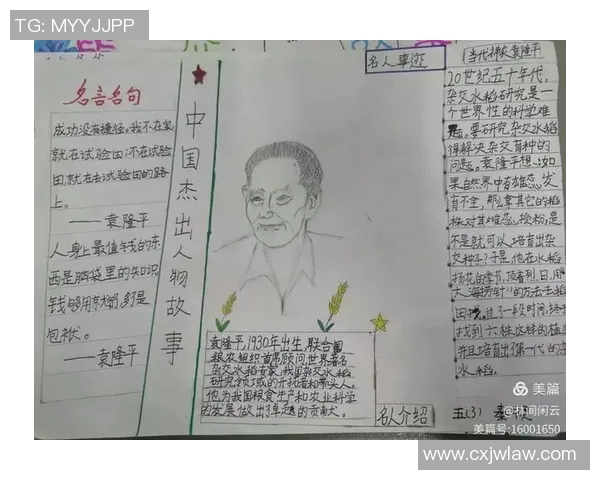 TG: MYYJJPP
名言名句
成功没有捷径。我不在家,
就在试验田;不在试验
田,就在去试验田的路
上。
——袁隆平
人身上最值钱的东
西是脑袋里的知识
钱够用就
包袱。
——袁隆平
中国杰出人物故事
名人事迹
袁隆平,1930年出生,联合国
粮农组织首席顾问,世界著名
杂交水稻专家,我国杂交水稻
研究领域的开拓者和带头人。
他为我国粮食生产和农业科学
的发展做出了卓越的贡献大。
名人介绍
当代神农袁隆平
20世纪五十年代,
杂交水稻研究是一
个世界性的科学难
题。要研究杂交水稻,
得解决杂交育种的
问题。袁隆平想:如
果自然界中有雄蕊发
育不全,那么拿其它的稻
株对其雌蕊授粉,是
不是就可以培育出杂
交种子?于是,他在水稻
扬花的季节,顶着烈日,用
大海捞针"的方法去稻
田找。了一段时间,终于
找到六株这样的植
并且培育出了第一代的杂
水稻。
五(3) 秦
美篇
@林间闲云
美篇号:16001650
www.cxjwlaw.com